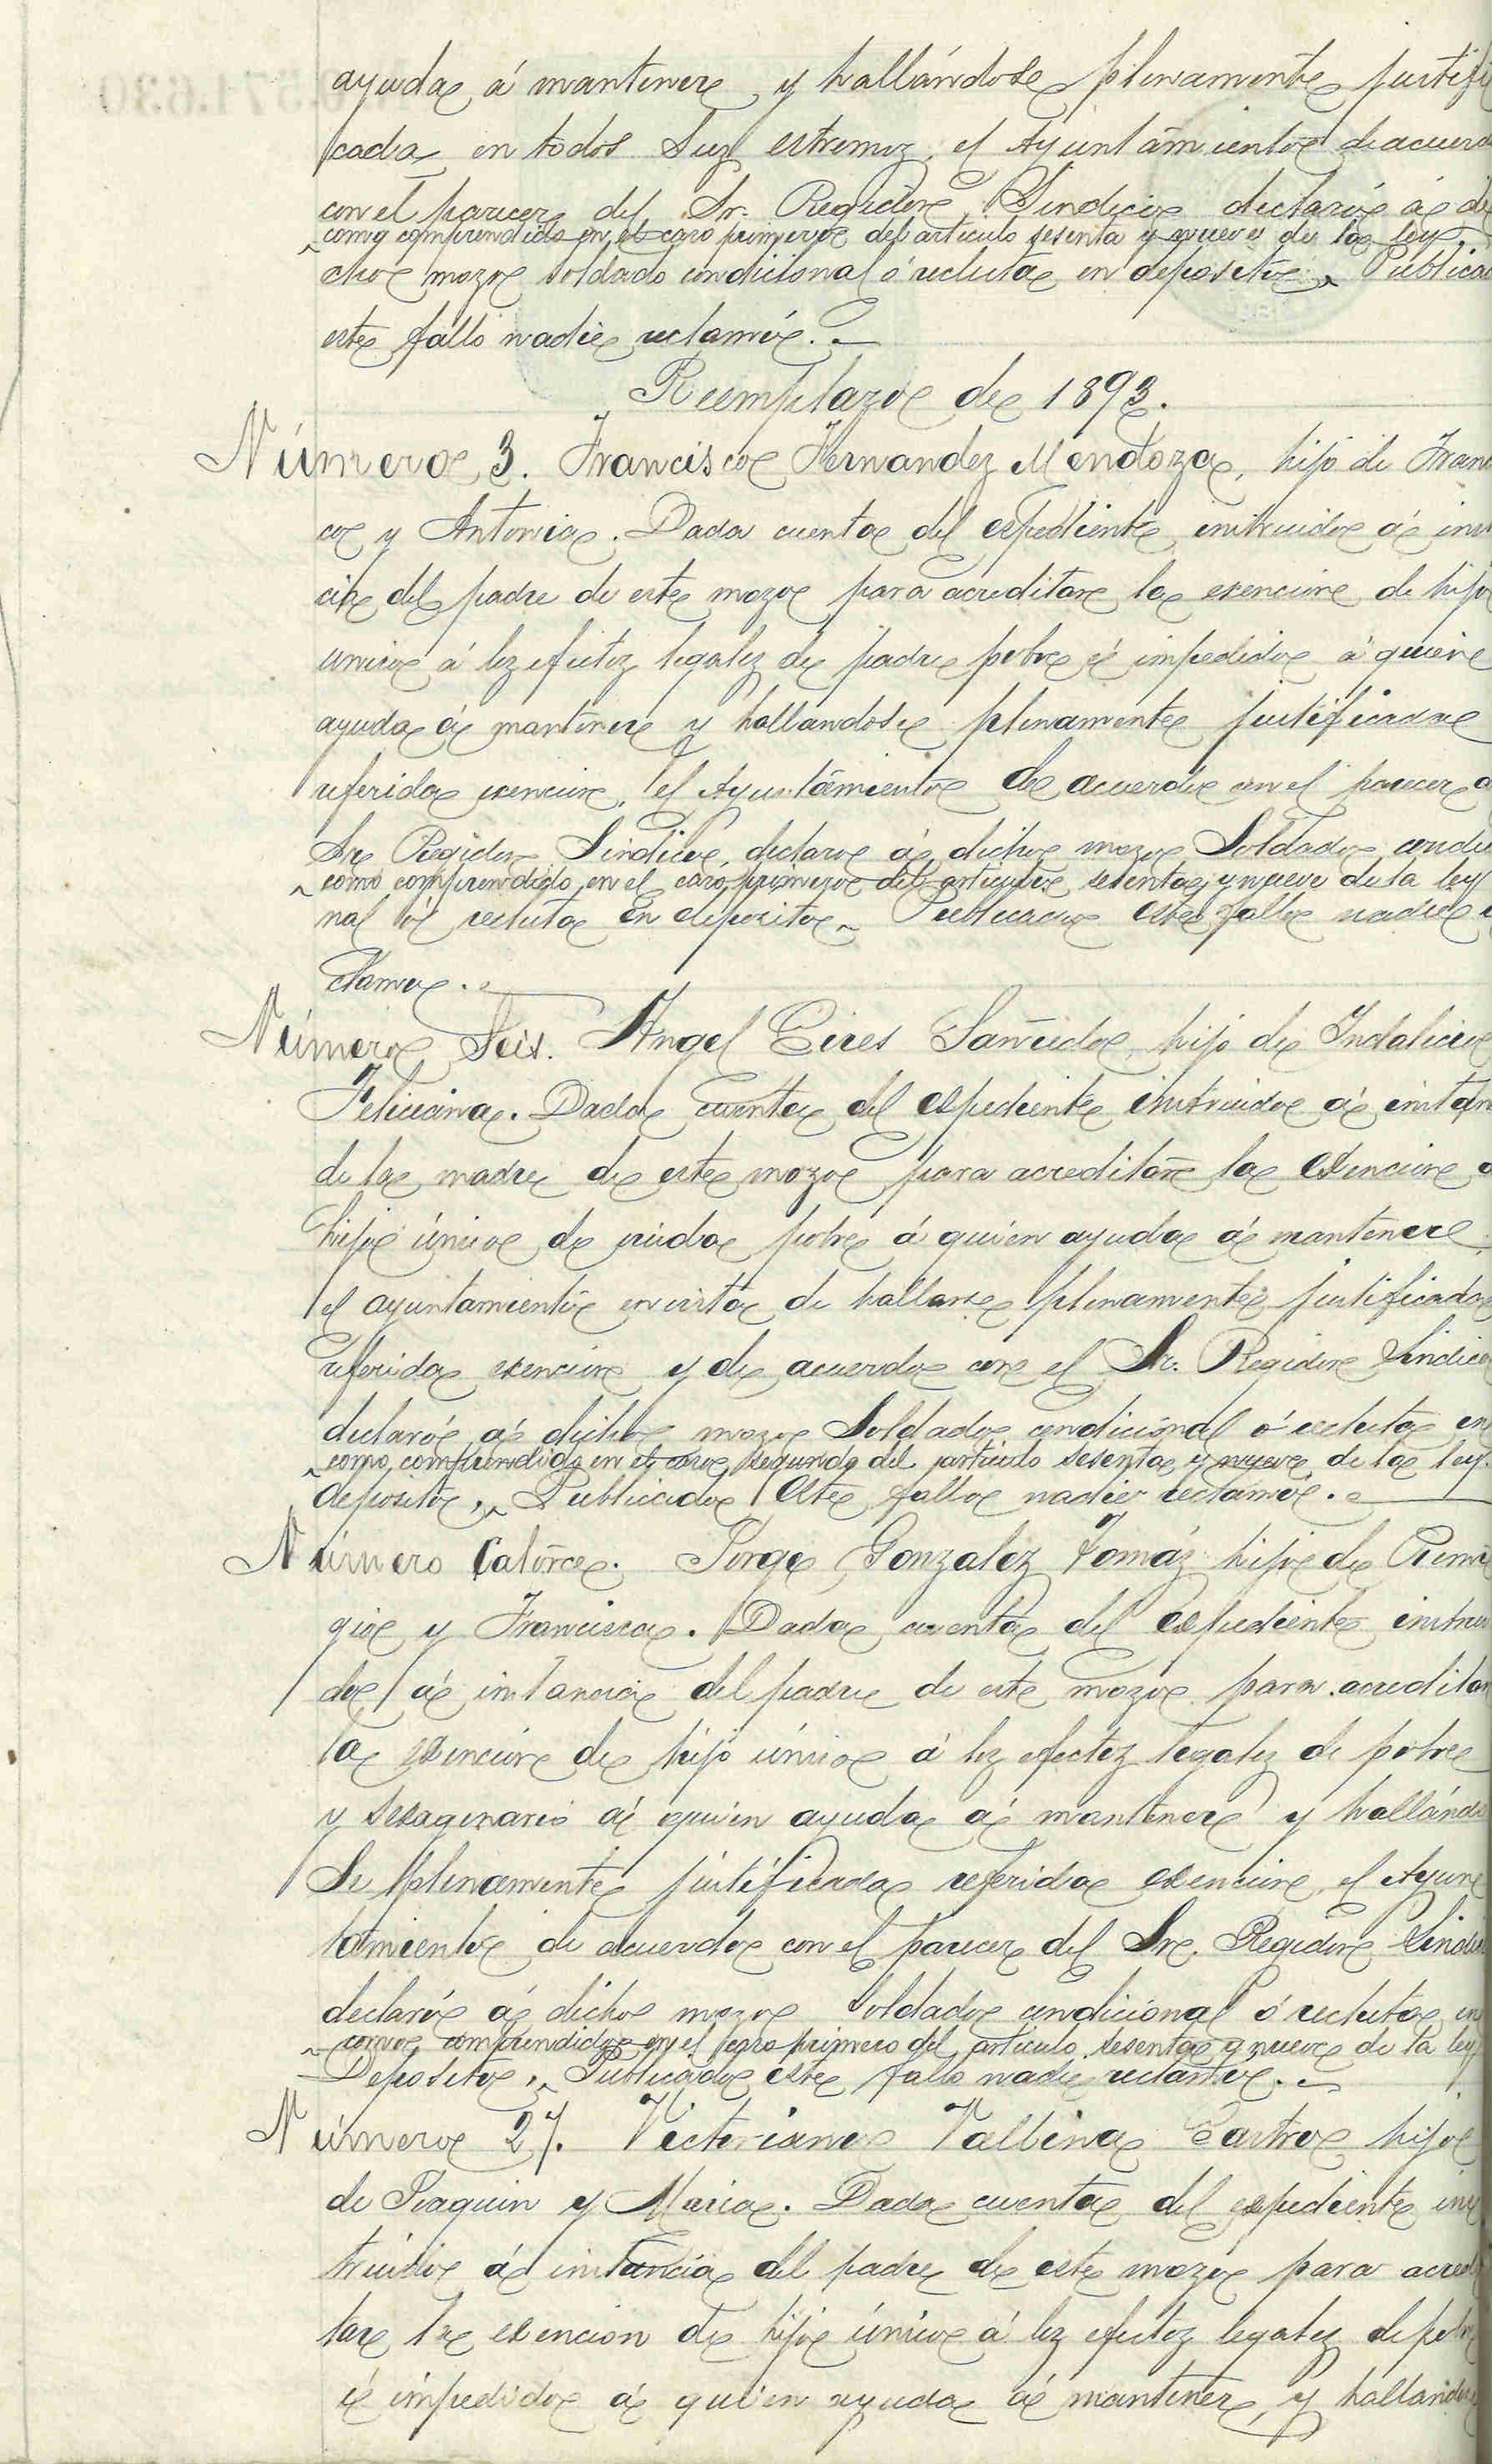 ayuda á mantener y hallándose plenamente justifi
cada en todos sus estremos, el Ayuntamiento de acuerd
con el parecer del Sr. Regidor Sindico declaró á di
como comprendido en el caso primero del articulo sesenta y nueve de la ley.
cho mozo soldado condicional ó recluta en deposito. Publicad
este fallo nadie reclamó.
Reemplazo de 1893.
Número 3. Francisco Hernandez Mendoza, hijo de Fran
co y Antonia. Dada cuenta del espediente instruido á ins
cia del padre de este mozo para acreditar la esencion de hijo
unico á los efectos legales de padre pobre é impedido á quien
ayuda á mantener y hallandose plenamente justificada
referida esencion, el Ayuntamiento de acuerdo con el parecer d
Sr Regidor Sindico, declaro á dicho mozo Soldado condi
como comprendido en el caso primero del articulo sesenta y nueve de la ley
nal ó recluta en deposito. Publicado este fallo nadie r
clamo.
Número Seis. Angel Cires Sañudo, hijo de Indalicio
Feliciana. Dada cuenta del espediente instruido á instan
de la madre de este mozo para acreditar la esencion d
hijo único de viuda pobre á quien ayuda á mantener
el ayuntamiento en vista de hallarse plenamente justificada
referida esencion y de acuerdo con el Sr. Regidor Sindico
declaró á dicho mozo Soldado condicional ó recluta en
como comprendido en el caso segundo del articulo sesenta y nueve de la ley.
deposito. Publicado este fallo nadie reclamó.
Número Catorce. Jorge Gonzalez Tomás hijo de Remi
gio y Francisca. Dada cuenta del espediente instrui
do á instancia del padre de este mozo para acreditar
la esencion de hijo único á los efectos legales de pobre
y sexagenario á quien ayuda á mantener y hallándo
se plenamente justificada referida esencion, el Ayun
tamiento de acuerdo con el parecer del Sr. Regidor Sindi
declaró á dicho mozo soldado condicional ó recluta en
como comprendido en el caso primero del articulo sesenta y nueve de la ley
Deposito. Publicado este fallo nadie reclamó.
Número 27. Victoriano Vallina Castro hijo
de Joaquin y Maria. Dada cuenta del espediente ins
truido á instancia del padre de este mozo para acredi
tar la esencion de hijo único á los efectos legales de pobre
é impedido á quien ayuda á mantener, y hallando